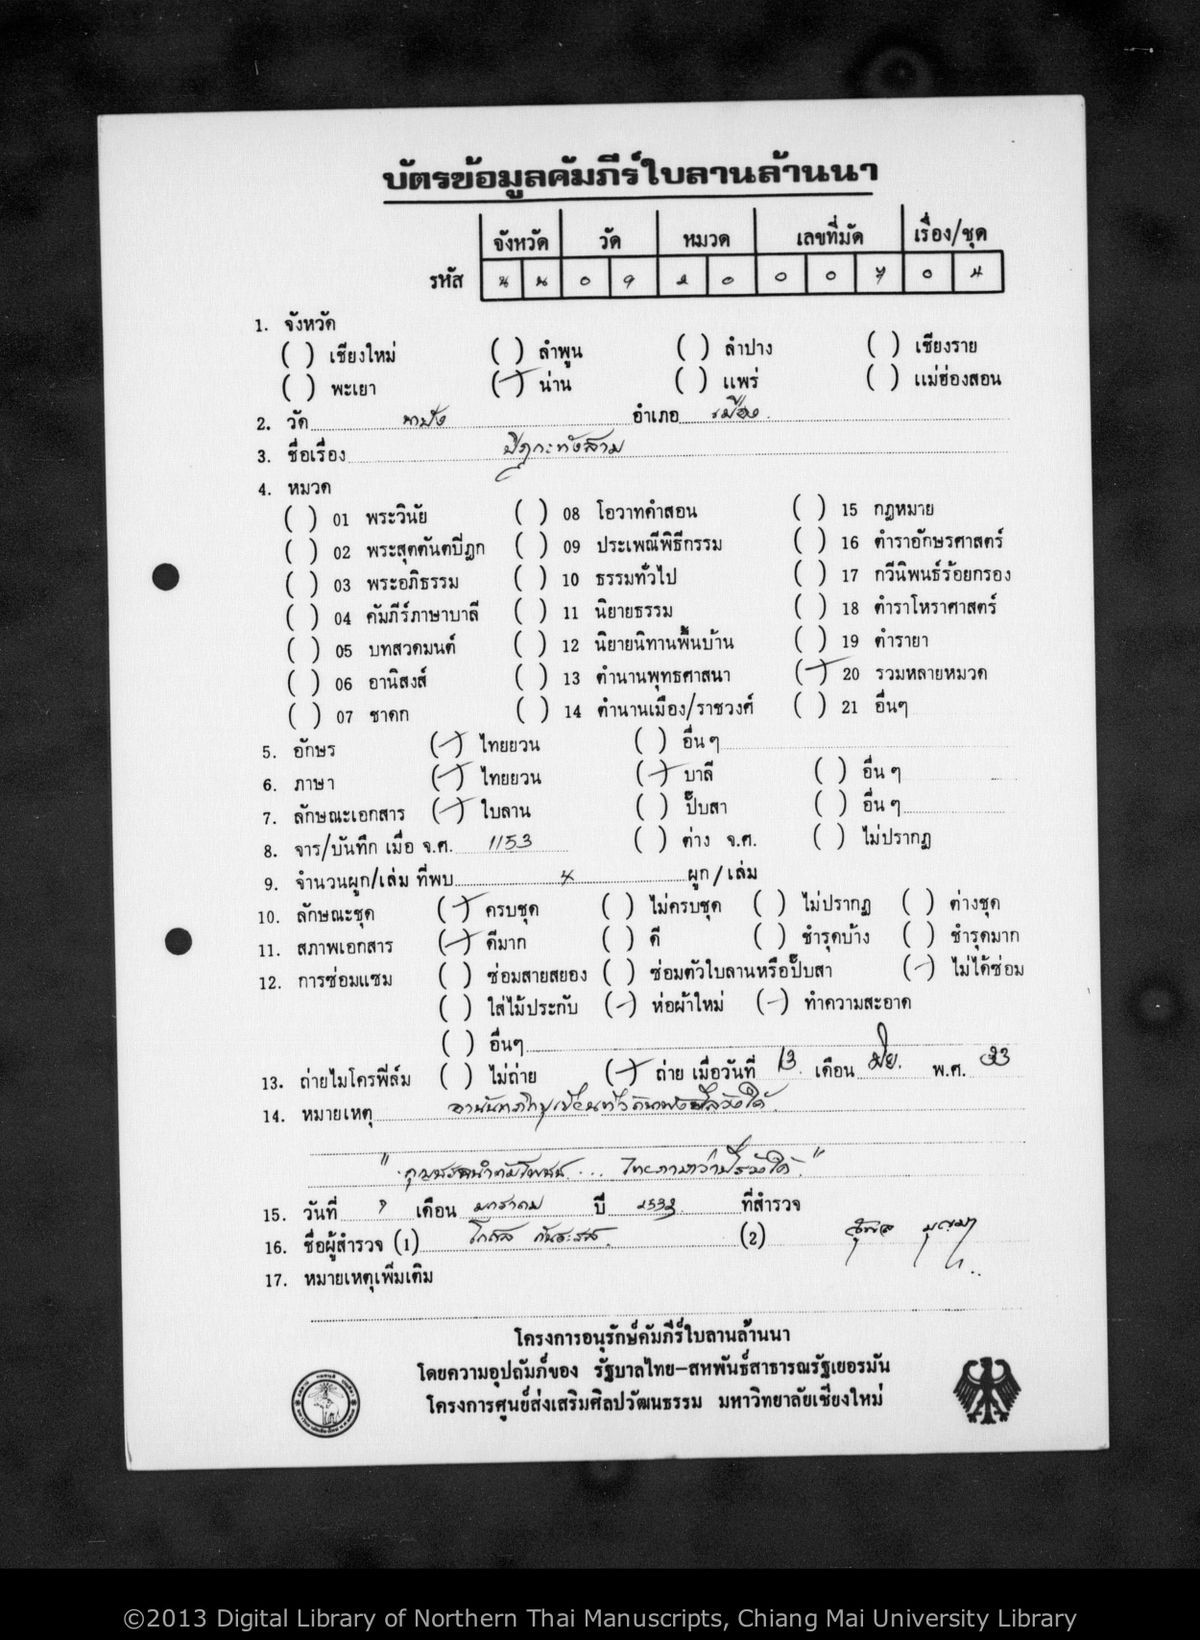 บัตรข้อมูลคัมภีร์ใบลานล้านนา
จังหวัด วัด หมวด เลขที่มัด เรื่อง/ชุด
รหัส น น 0 9 2 0 0 0 7 0 4
1. จังหวัด
( ) เชียงใหม่ ( ) ลำพูน ( ) ลำปาง ( ) เชียงราย
( ) พะเยา (/) น่าน ( ) แพร่ ( ) แม่ฮ่องสอน
2. วัด นาปัง อำเภอ เมือง
3. ชื่อเรื่อง ปิฎกะทังสาม
4. หมวด
( ) 01 พระวินัย ( ) 08 โอวาทคำสอน ( ) 15 กฎหมาย
( ) 02 พระสุตตันตปิฎก ( ) 09 ประเพณีพิธีกรรม ( ) 16 ตำราอักษรศาสตร์
( ) 03 พระอภิธรรม ( ) 10 ธรรมทั่วไป ( ) 17 กวีนิพนธ์ร้อยกรอง
( ) 04 คัมภีร์ภาษาบาลี ( ) 11 นิยายธรรม ( ) 18 ตำราโหราศาสตร์
( ) 05 บทสวดมนต์ ( ) 12 นิยายนิทานพื้นบ้าน ( ) 19 ตำรายา
( ) 06 อานิสงส์ ( ) 13 ตำนานพุทธศาสนา (/) 20 รวมหลายหมวด
( ) 07 ชาดก ( ) 14 ตำนานเมือง/ราชวงศ์ ( ) 21 อื่นๆ
5. อักษร (/) ไทยยวน ( ) อื่น ๆ
6. ภาษา (/) ไทยยวน (/) บาลี ( ) อื่น ๆ
7. ลักษณะเอกสาร (/) ใบลาน ( ) ปั๊บสา ( ) อื่น ๆ
8. จาร/บันทึก เมื่อ จ.ศ. 1153 ( ) ต่าง จ.ศ. ( ) ไม่ปรากฏ
9. จำนวนผูก/เล่ม ที่พบ 4 ผูก/เล่ม
10. ลักษณะชุด (/) ครบชุด ( ) ไม่ครบชุด ( ) ไม่ปรากฏ ( ) ต่างชุด
11. สภาพเอกสาร (/) ดีมาก ( ) ดี ( ) ชำรุดบ้าง ( ) ชำรุดมาก
12. การซ่อมแซม ( ) ซ่อมสายสยอง ( ) ซ่อมตัวใบลานหรือปั๊บสา (/) ไม่ได้ซ่อม
( ) ใส่ไม้ประกับ (/) ห่อผ้าใหม่ (/) ทำความสะอาด
( ) อื่นๆ
13. ถ่ายไมโครฟิล์ม ( ) ไม่ถ่าย (/) ถ่าย เมื่อวันที่ 13 เดือน มิย. พ.ศ. 33
14. หมายเหตุ
15. วันที่ เดือน มกราคม ปี 2533 ที่สำรวจ
16. ชื่อผู้สำรวจ (1) (2)
17. หมายเหตุเพิ่มเติม
โครงการอนุรักษ์คัมภีร์ใบลานล้านนา
โดยความอุปถัมภ์ของ รัฐบาลไทย-สหพันธ์สาธารณรัฐเยอรมัน
โครงการศูนย์ส่งเสริมศิลปวัฒนธรรม มหาวิทยาลัยเชียงใหม่
©2013 Digital Library of Northern Thai Manuscripts, Chiang Mai University Library